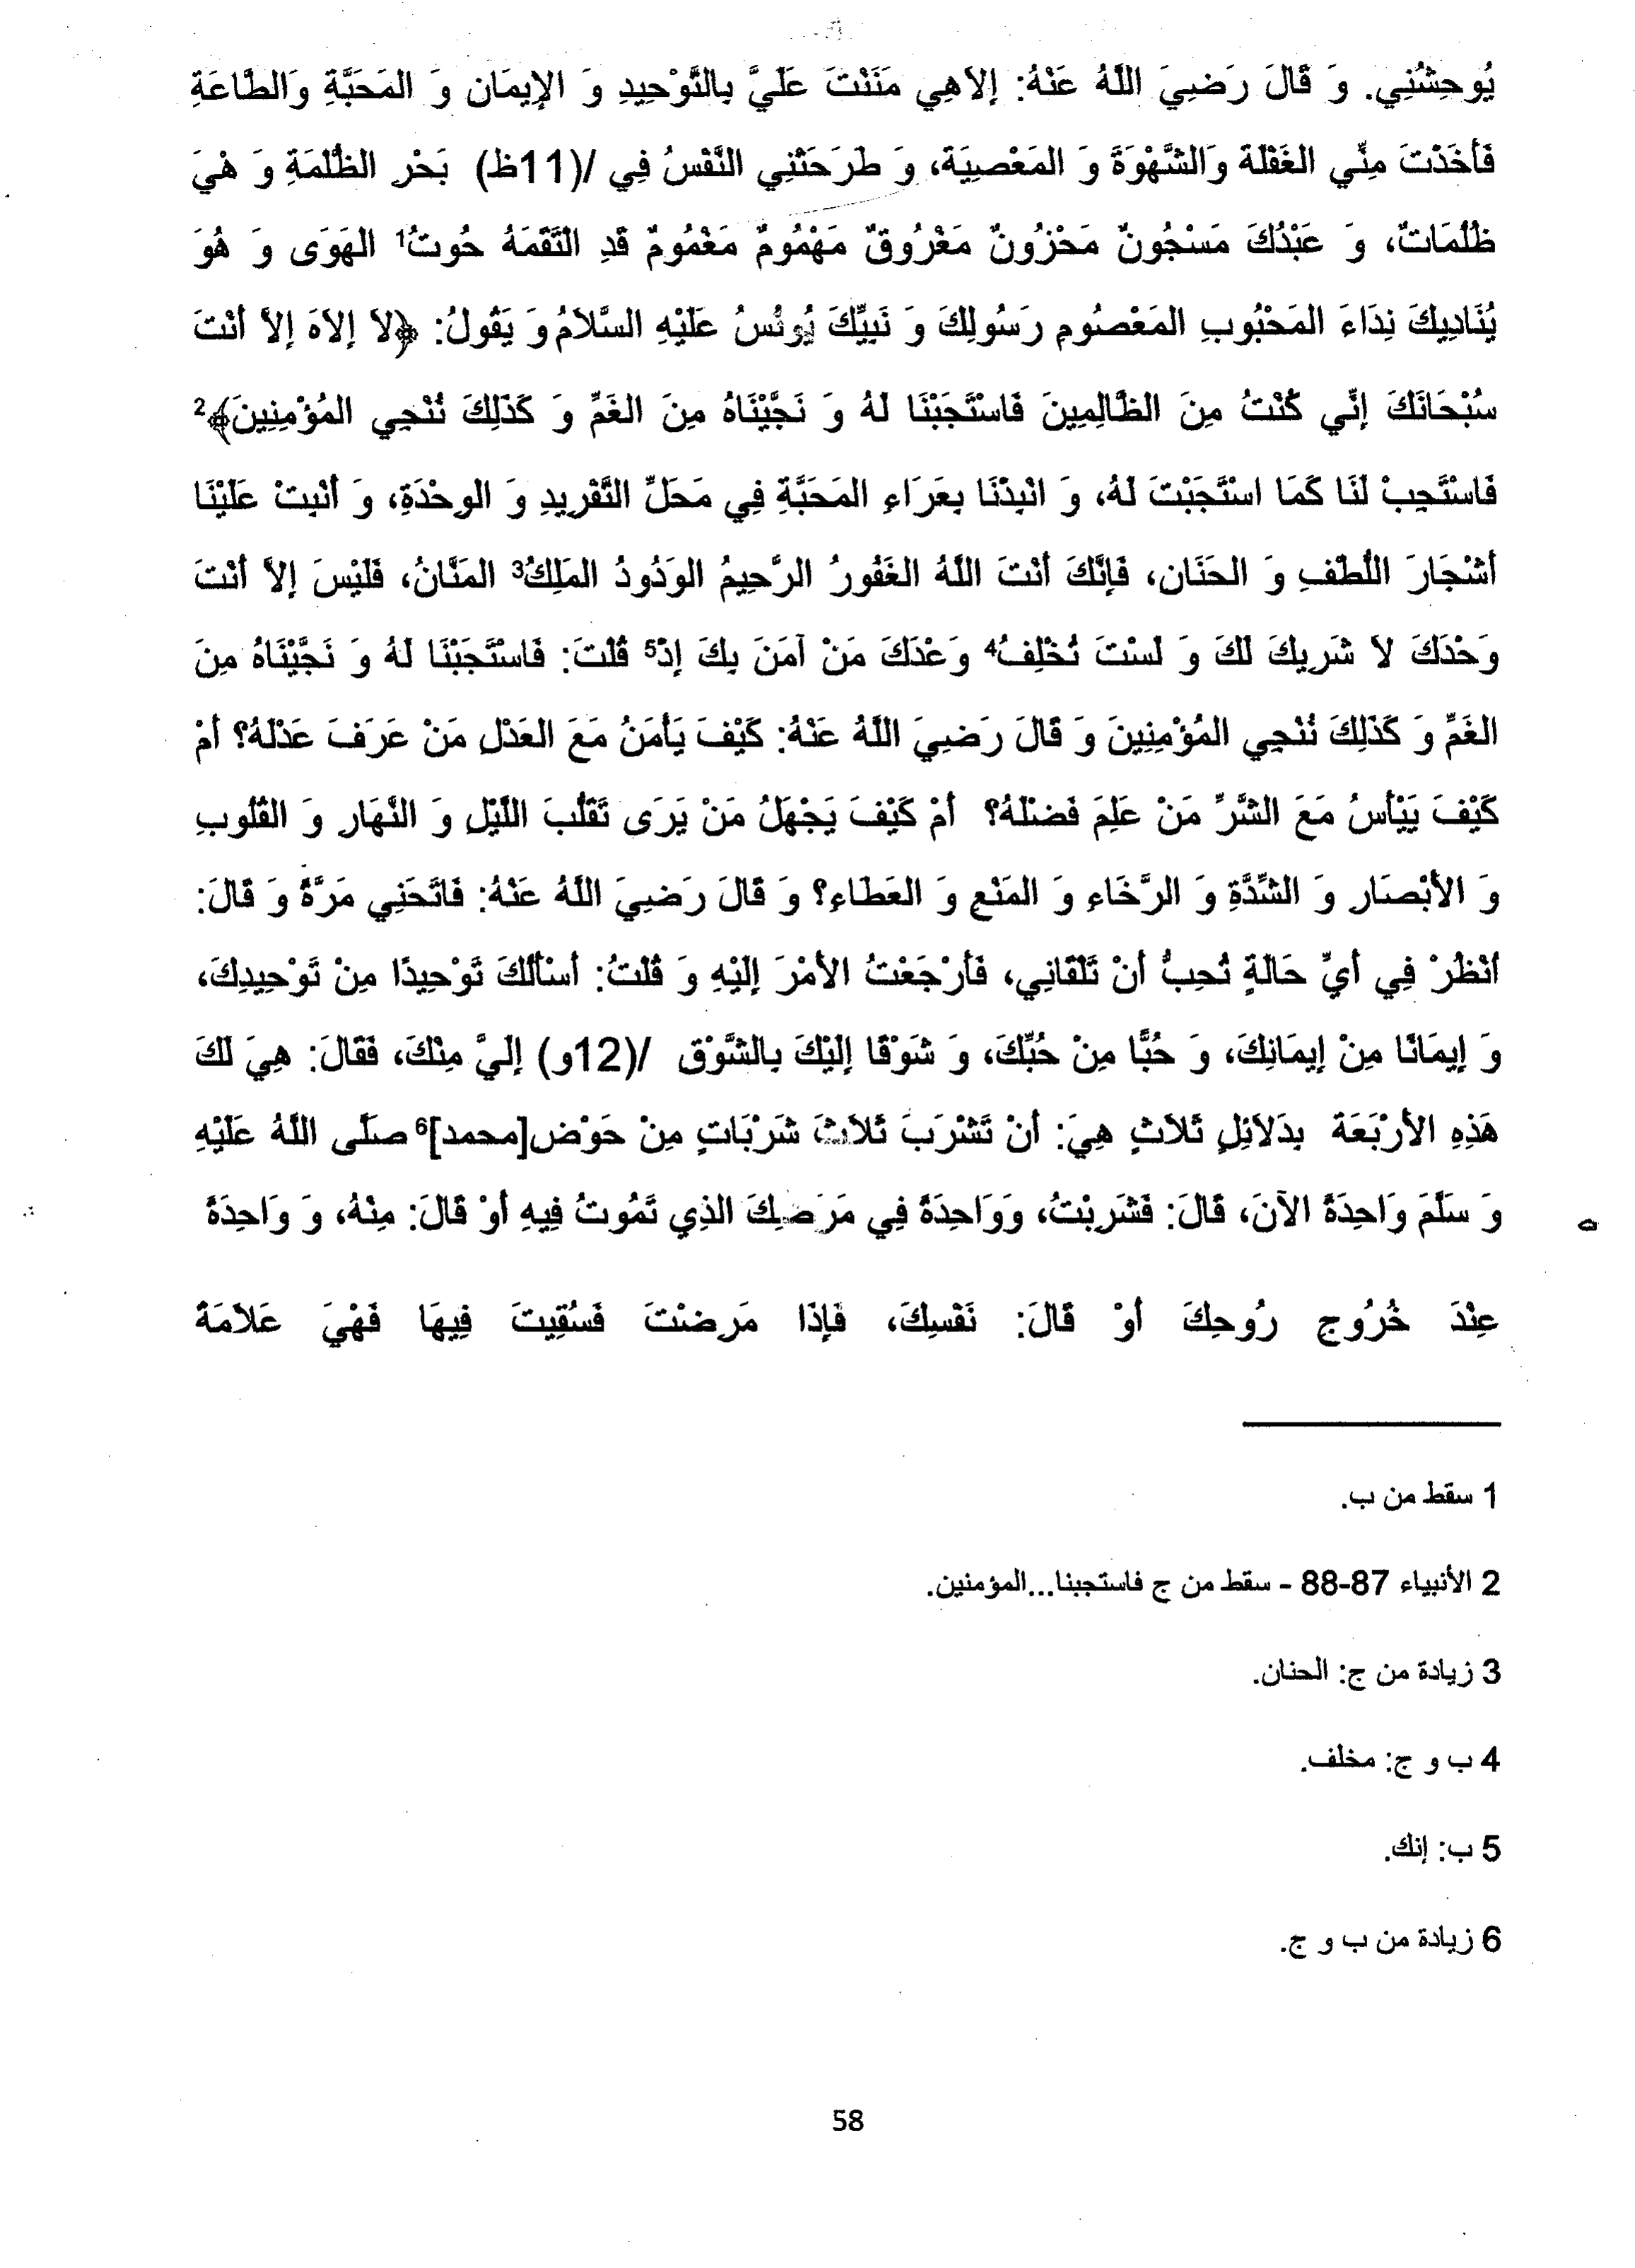 يُوحِشُنِي. وَ قَالَ رَضِيَ اللَّهُ عَنْهُ: إِلاَهِي مَنَنْتَ عَلَيَّ بِالتَّوْحِيدِ وَ الإِيمَانِ وَ المَحَبَّةِ وَالطَّاعَةِ
فَأَخَذْتَ مِنِّي الغَفْلَة وَالشَّهْوَةَ وَ المَعْصِيَة، وَ طَرَحَتْنِي النَّفْسُ فِي /(11ظ) بَحْرِ الظُّلْمَةِ وَ هْيَ
ظُلُمَاتٌ، وَ عَبْدُكَ مَسْجُونٌ مَحْزُونٌ مَغْرُوقٌ مَهْمُومٌ مَغْمُومٌ قَدِ الْتَقَمَهُ حُوتُ1 الهَوَى وَ هُوَ
يُنَادِيكَ نِدَاءَ المَحْبُوبِ المَعْصُومِ رَسُولِكَ وَ نَبِيِّكَ يُونُسُ عَلَيْهِ السَّلامُ وَ يَقُولُ: ﴿لا إِلاهَ إِلاَّ أَنْتَ
سُبْحَانَكَ إِنِّي كُنْتُ مِنَ الظَّالِمِينَ فَاسْتَجَبْنَا لَهُ وَ نَجَّيْنَاهُ مِنَ الغَمِّ وَ كَذَلِكَ نُنْجِي المُؤْمِنِينَ﴾2
فَاسْتَجِبْ لَنَا كَمَا اسْتَجَبْتَ لَهُ، وَ انْبِذْنَا بِعَرَاءِ المَحَبَّةِ فِي مَحَلِّ التَّفْرِيدِ وَ الوِحْدَةِ، وَ أَنْبِتْ عَلَيْنَا
أَشْجَارَ اللُّطْفِ وَ الحَنَانِ، فَإِنَّكَ أَنْتَ اللَّهُ الغَفُورُ الرَّحِيمُ الوَدُودُ المَلِكُ3 المَنَّانُ، فَلَيْسَ إِلاَّ أَنْتَ
وَحْدَكَ لاَ شَرِيكَ لَكَ وَ لَسْتَ تُخْلِفُ4 وَعْدَكَ مَنْ آمَنَ بِكَ إِذْ5 قُلْتَ: فَاسْتَجَبْنَا لَهُ وَ نَجَّيْنَاهُ مِنَ
الغَمِّ وَ كَذَلِكَ نُنْجِي المُؤْمِنِينَ وَ قَالَ رَضِيَ اللَّهُ عَنْهُ: كَيْفَ يَأْمَنُ مَعَ العَدْلِ مَنْ عَرَفَ عَدْلَهُ؟ أَمْ
كَيْفَ يَيْأَسُ مَعَ الشَّرِّ مَنْ عَلِمَ فَضْلَهُ؟ أَمْ كَيْفَ يَجْهَلُ مَنْ يَرَى تَقَلُّبَ اللَّيْلِ وَ النَّهَارِ وَ القُلُوبِ
وَ الأَبْصَارِ وَ الشِّدَّةِ وَ الرَّخَاءِ وَ المَنْعِ وَ العَطَاءِ؟ وَ قَالَ رَضِيَ اللَّهُ عَنْهُ: فَاتَحَنِي مَرَّةً وَ قَالَ:
أُنْظُرْ فِي أَيِّ حَالَةٍ تُحِبُّ أَنْ تَلْقَانِي، فَأَرْجَعْتُ الأَمْرَ إِلَيْهِ وَ قُلْتُ: أَسْأَلُكَ تَوْحِيدًا مِنْ تَوْحِيدِكَ،
وَ إِيمَانًا مِنْ إِيمَانِكَ، وَ حُبًّا مِنْ حُبِّكَ، وَ شَوْقًا إِلَيْكَ بِالشَّوْقِ /(12و) إِلَيَّ مِنْكَ، فَقَالَ: هِيَ لَكَ
هَذِهِ الأَرْبَعَة بِدَلاَئِلٍ ثَلاثٍ هِيَ: أَنْ تَشْرَبَ ثَلاثَ شَرْبَاتٍ مِنْ حَوْضِ[محمد]6 صَلَّى اللَّهُ عَلَيْهِ
وَ سَلَّمَ وَاحِدَةً الآنَ، قَالَ: فَشَرِبْتُ، وَوَاحِدَةً فِي مَرَضِكَ الذِي تَمُوتُ فِيهِ أَوْ قَالَ: مِنْهُ، وَ وَاحِدَةً
عِنْدَ خُرُوجِ رُوحِكَ أَوْ قَالَ: نَفْسِكَ، فَإِذَا مَرِضْتَ فَسُقِيتَ فِيهَا فَهْيَ عَلاَمَةٌ
1 سقط من ب.
2 الأنبياء 87-88 - سقط من ج فاستجبنا...المؤمنين.
3 زيادة من ج: الحنان.
4 ب و ج: مخلف.
5 ب: إنك.
6 زيادة من ب و ج.
58